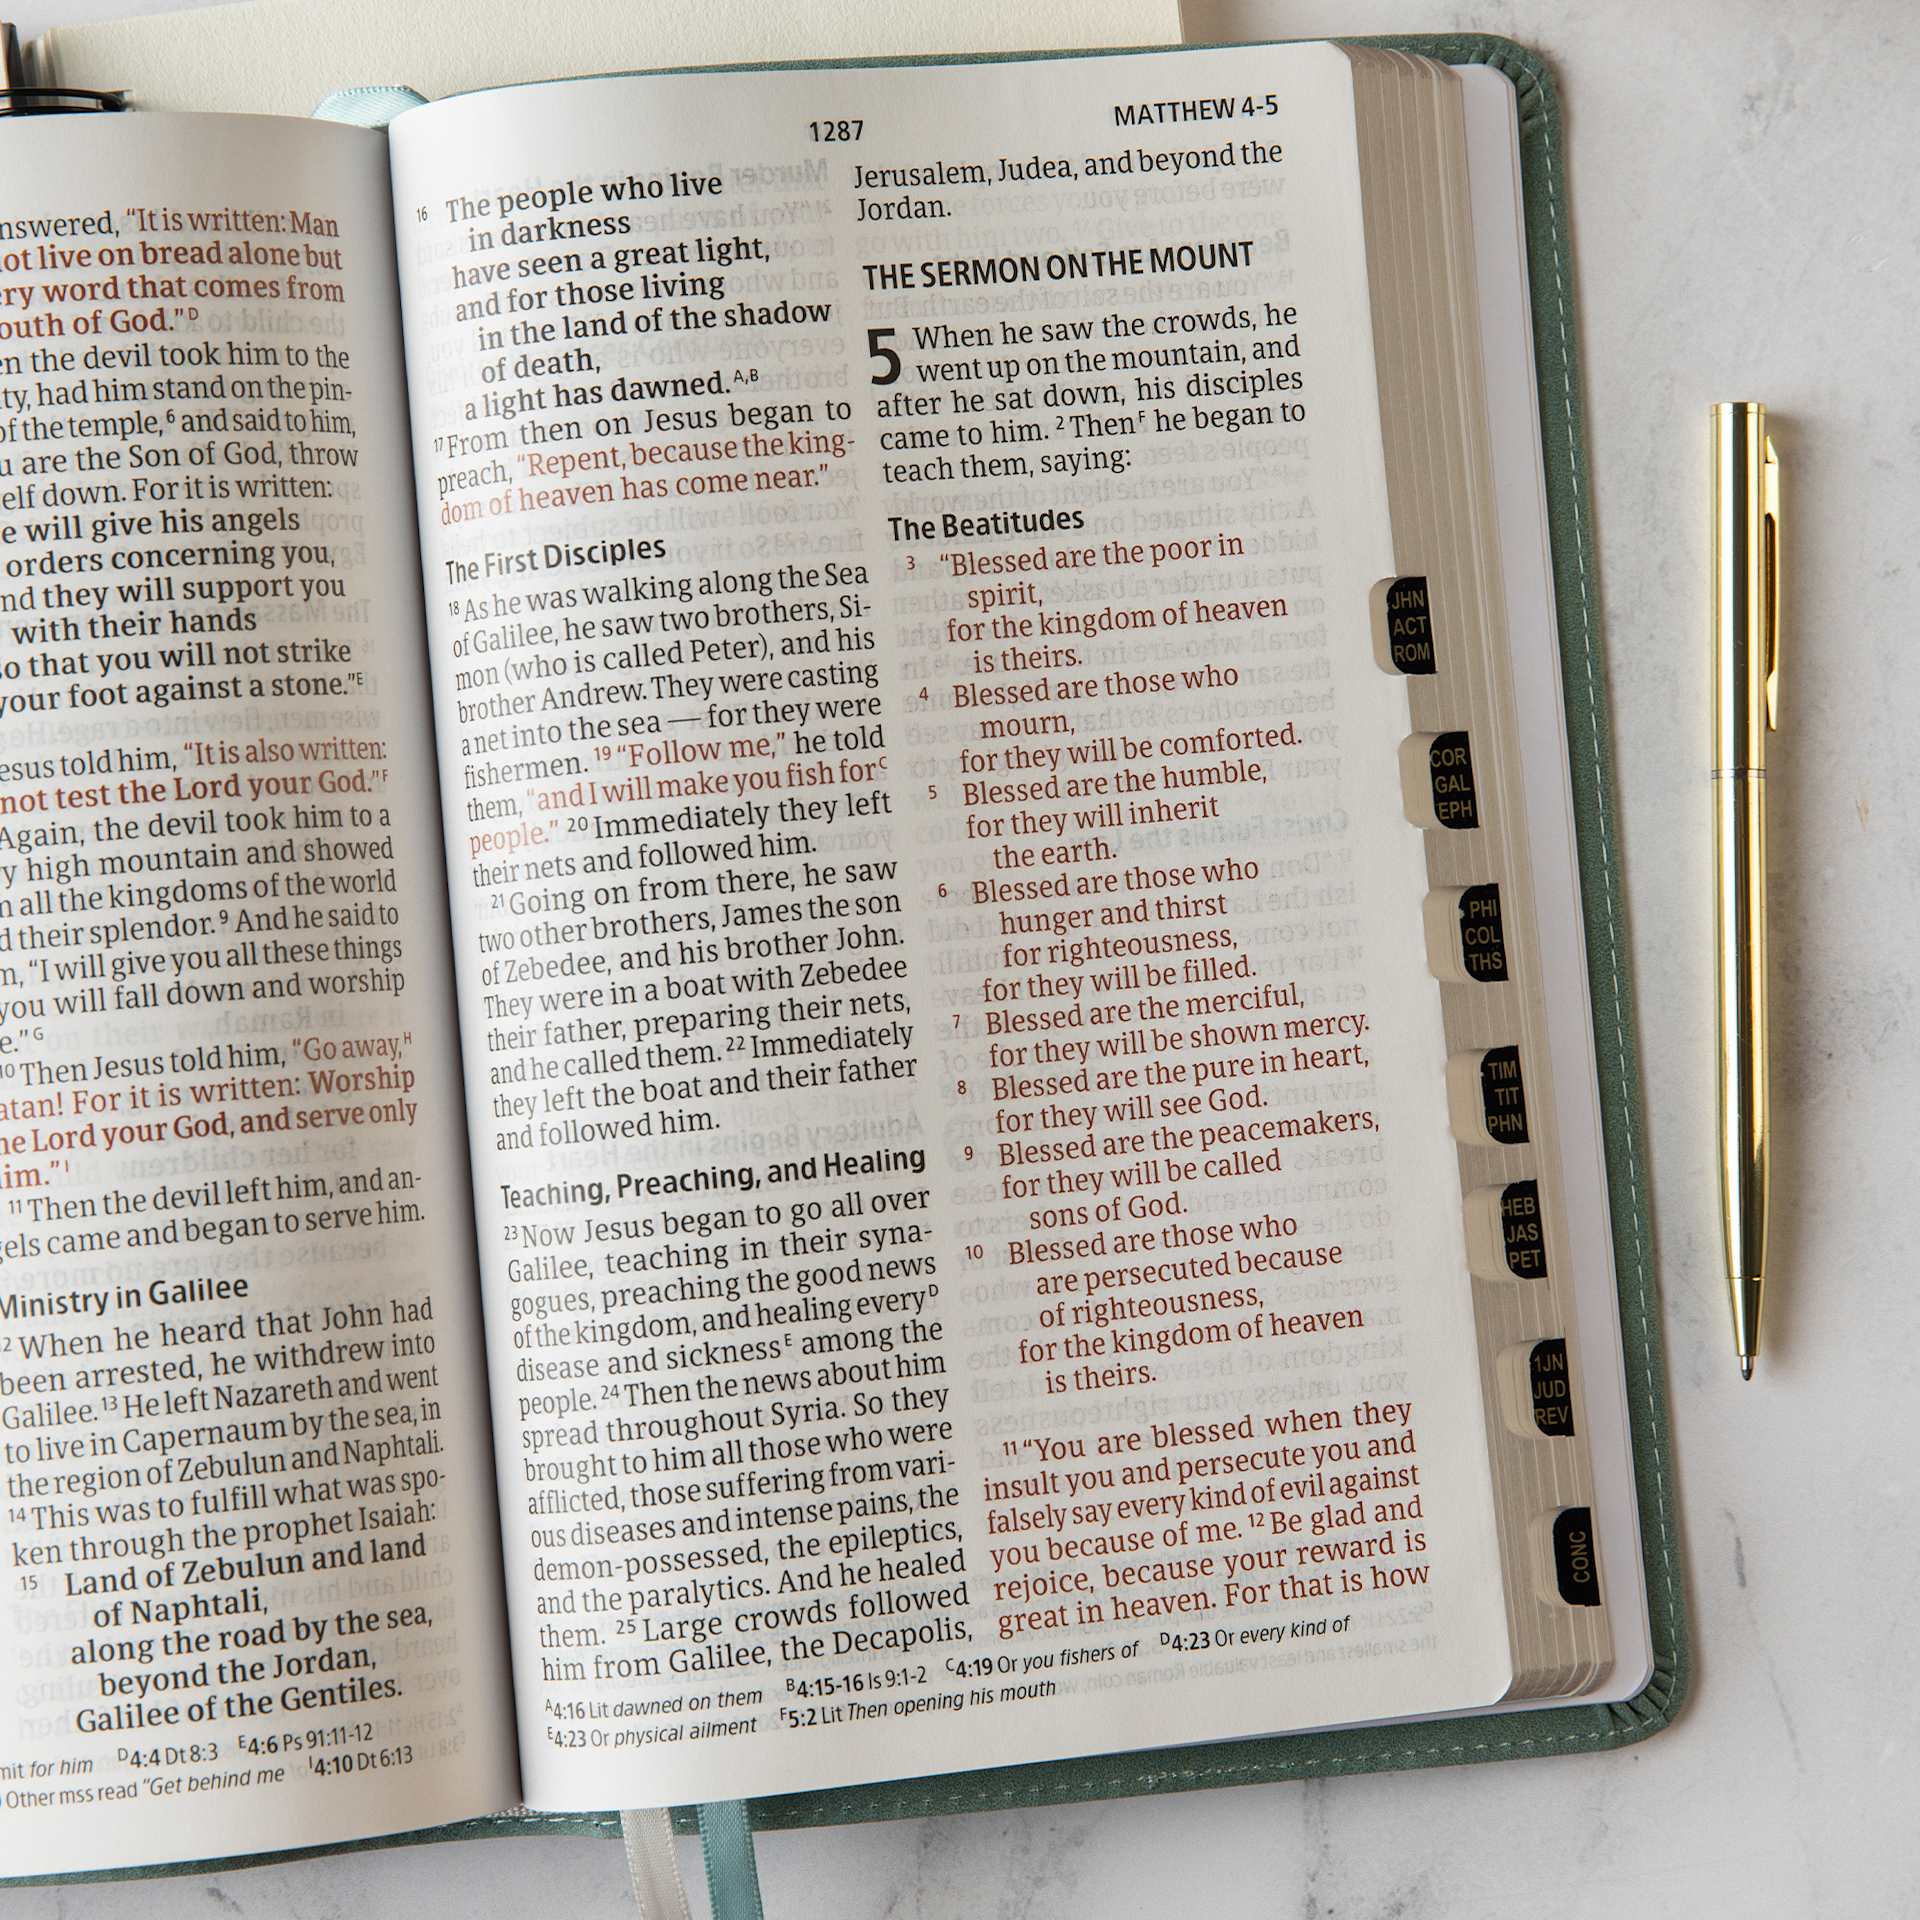 nswered, “It is written: Man
not live on bread alone but
ery word that comes from
outh of God.”D
en the devil took him to the
ty, had him stand on the pin-
of the temple,6 and said to him,
u are the Son of God, throw
elf down. For it is written:
e will give his angels
orders concerning you,
nd they will support you
with their hands
so that you will not strike
your foot against a stone.”E
esus told him, “It is also written:
not test the Lord your God.”F
Again, the devil took him to a
y high mountain and showed
m all the kingdoms of the world
d their splendor. 9 And he said to
m, “I will give you all these things
you will fall down and worship
e.”G
10 Then Jesus told him, “Go away,H
atan! For it is written: Worship
he Lord your God, and serve only
im.”I
11 Then the devil left him, and an-
gels came and began to serve him.
Ministry in Galilee
12 When he heard that John had
been arrested, he withdrew into
Galilee. 13 He left Nazareth and went
to live in Capernaum by the sea, in
the region of Zebulun and Naphtali.
14 This was to fulfill what was spo-
ken through the prophet Isaiah:
15 Land of Zebulun and land
of Naphtali,
along the road by the sea,
beyond the Jordan,
Galilee of the Gentiles.
mit for him D4:4 Dt 8:3 E4:6 Ps 91:11-12
Other mss read “Get behind me I4:10 Dt 6:13
1287
MATTHEW 4-5
16 The people who live
in darkness
have seen a great light,
and for those living
in the land of the shadow
of death,
a light has dawned.A,B
17 From then on Jesus began to
preach, “Repent, because the king-
dom of heaven has come near.”
The First Disciples
18 As he was walking along the Sea
of Galilee, he saw two brothers, Si-
mon (who is called Peter), and his
brother Andrew. They were casting
a net into the sea — for they were
fishermen. 19 “Follow me,” he told
them, “and I will make you fish forC
people.” 20 Immediately they left
their nets and followed him.
21 Going on from there, he saw
two other brothers, James the son
of Zebedee, and his brother John.
They were in a boat with Zebedee
their father, preparing their nets,
and he called them. 22 Immediately
they left the boat and their father
and followed him.
Teaching, Preaching, and Healing
23 Now Jesus began to go all over
Galilee, teaching in their syna-
gogues, preaching the good news
of the kingdom, and healing everyD
disease and sicknessE among the
people. 24 Then the news about him
spread throughout Syria. So they
brought to him all those who were
afflicted, those suffering from vari-
ous diseases and intense pains, the
demon-possessed, the epileptics,
and the paralytics. And he healed
them. 25 Large crowds followed
him from Galilee, the Decapolis,
Jerusalem, Judea, and beyond the
Jordan.
THE SERMON ON THE MOUNT
5 When he saw the crowds, he
went up on the mountain, and
after he sat down, his disciples
came to him. 2 ThenF he began to
teach them, saying:
The Beatitudes
3 “Blessed are the poor in
spirit,
for the kingdom of heaven
is theirs.
4 Blessed are those who
mourn,
for they will be comforted.
5 Blessed are the humble,
for they will inherit
the earth.
6 Blessed are those who
hunger and thirst
for righteousness,
for they will be filled.
7 Blessed are the merciful,
for they will be shown mercy.
8 Blessed are the pure in heart,
for they will see God.
9 Blessed are the peacemakers,
for they will be called
sons of God.
10 Blessed are those who
are persecuted because
of righteousness,
for the kingdom of heaven
is theirs.
11 “You are blessed when they
insult you and persecute you and
falsely say every kind of evil against
you because of me. 12 Be glad and
rejoice, because your reward is
great in heaven. For that is how
A4:16 Lit dawned on them B4:15-16 Is 9:1-2 C4:19 Or you fishers of D4:23 Or every kind of
E4:23 Or physical ailment F5:2 Lit Then opening his mouth
JHN
ACT
ROM
COR
GAL
EPH
PHI
COL
THS
TIM
TIT
PHN
HEB
JAS
PET
1JN
JUD
REV
CONC